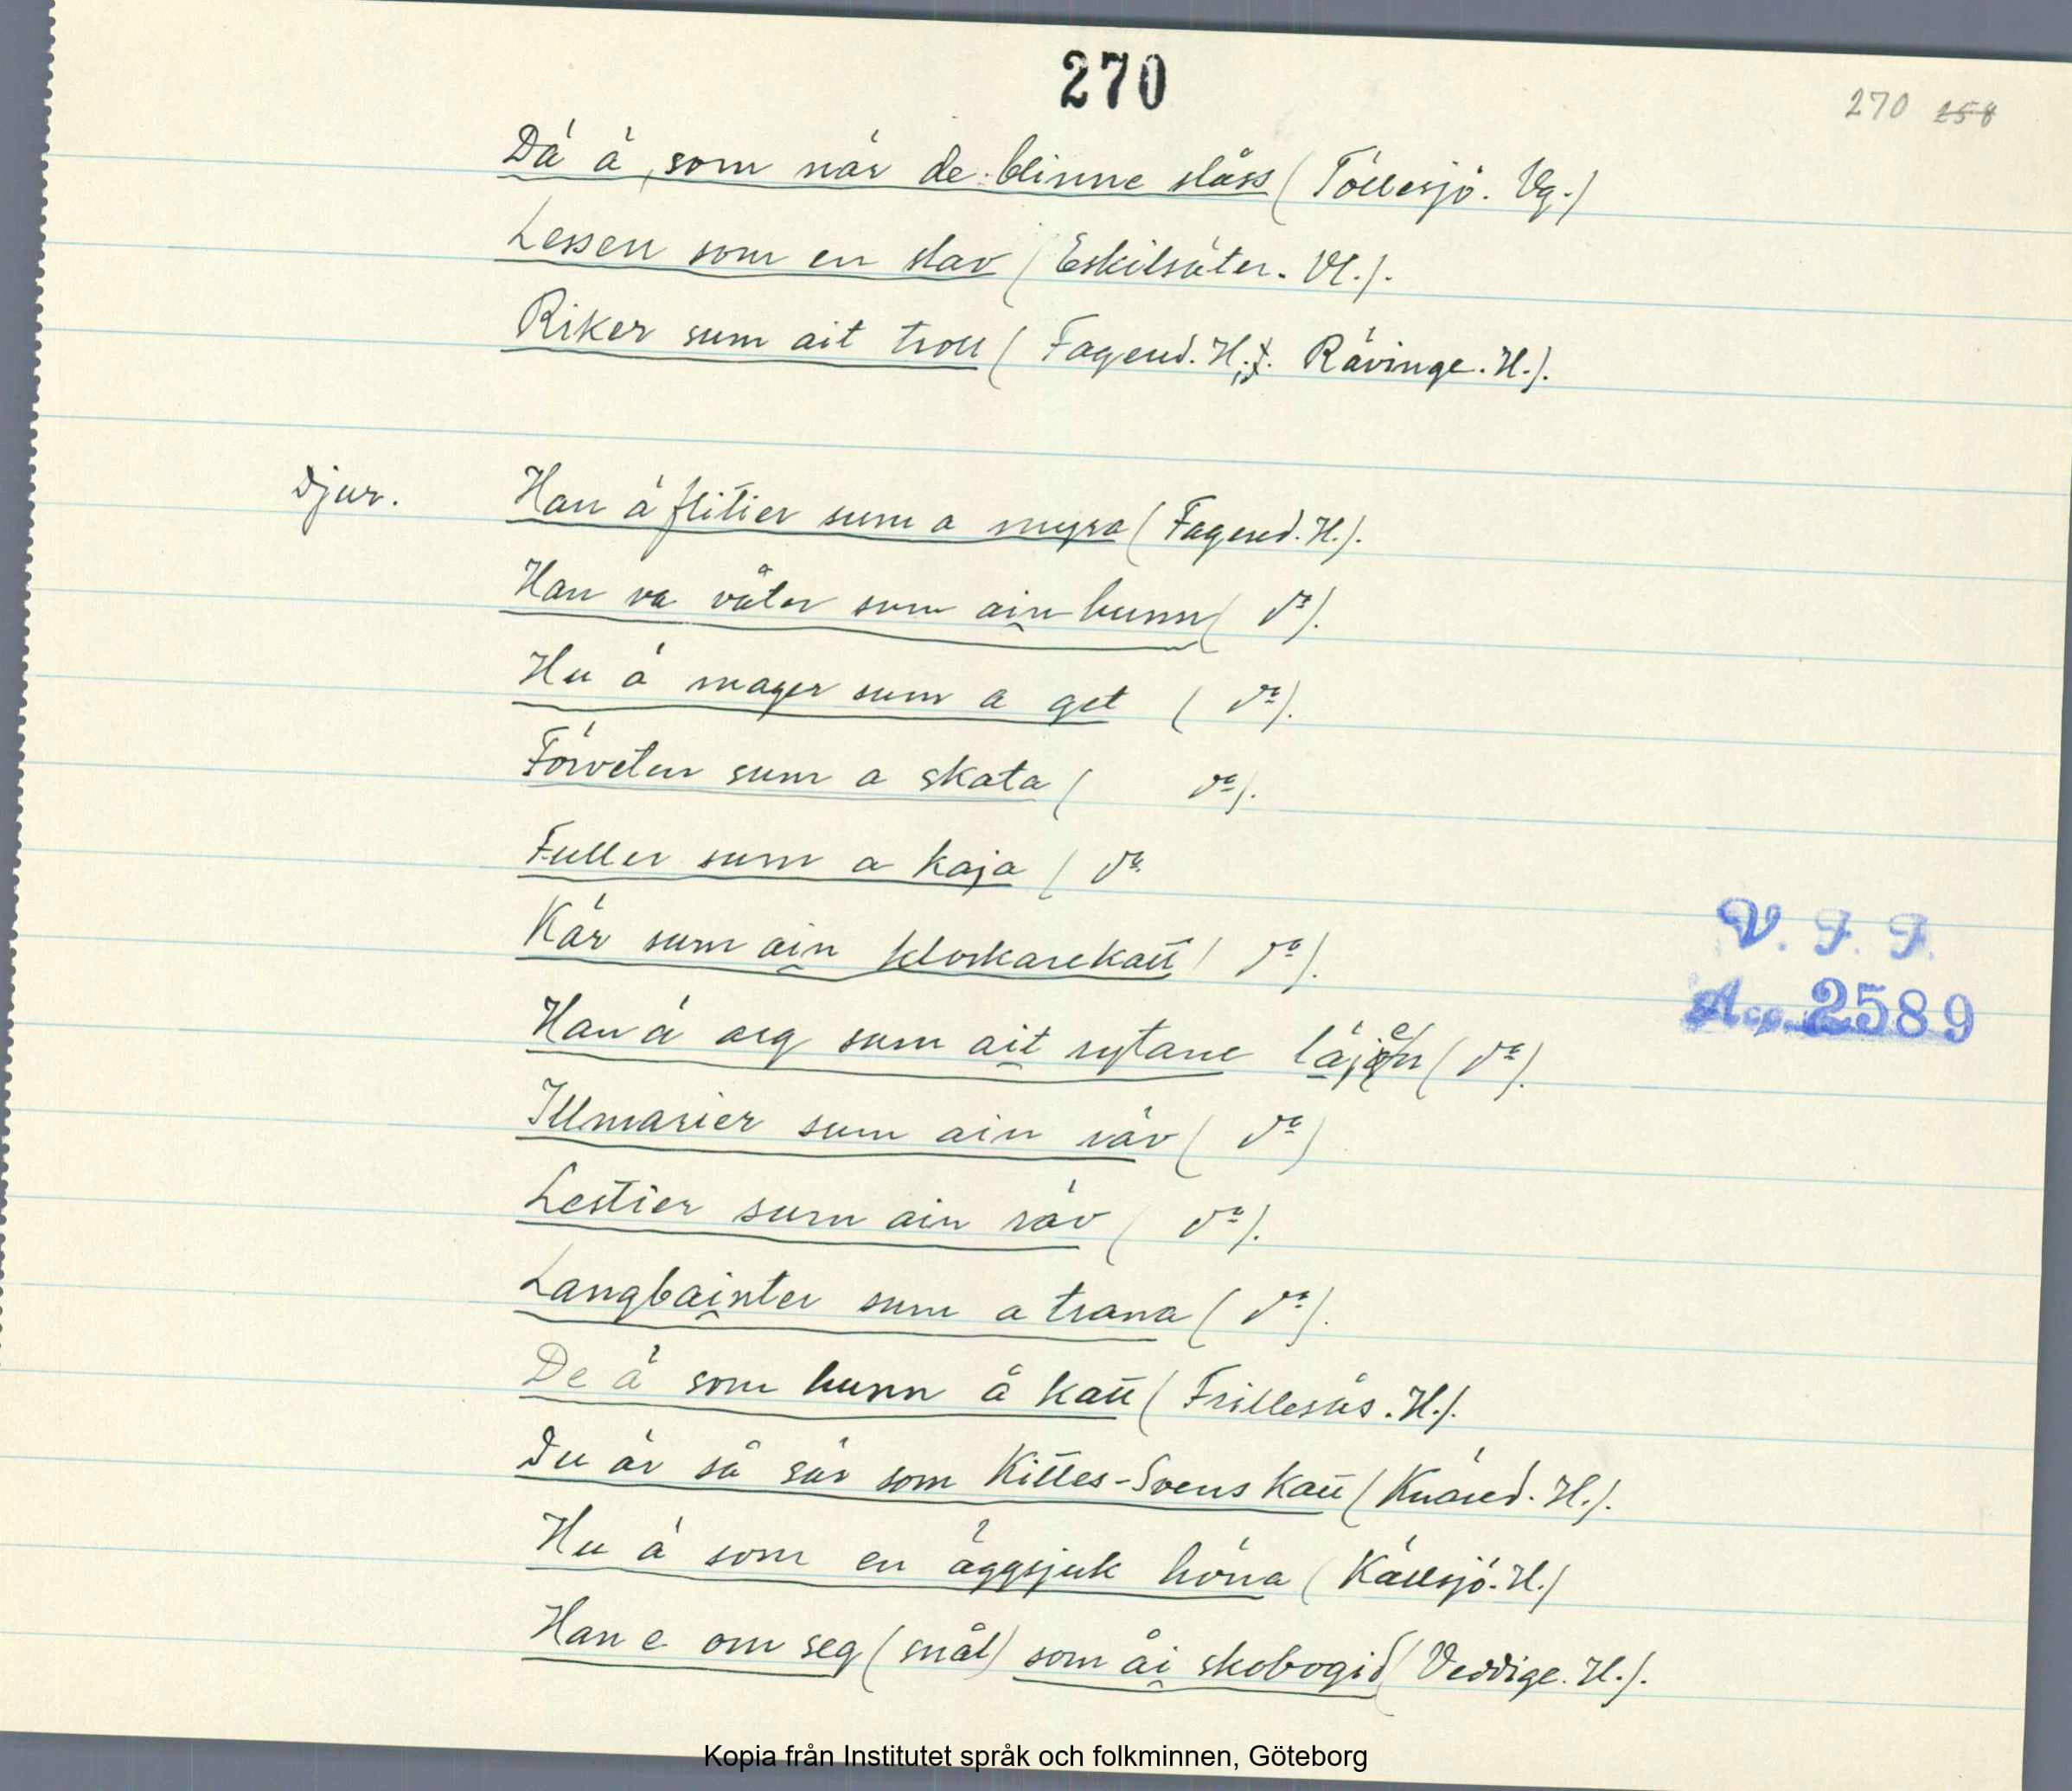 270
270 258
Dä ä, som när de blinne slåss (Töllesjö. Vg.)
Lessen som en slav (Eskilsäter. Vl.).
Riker sum ait troll (Fagered. H.; Rävinge. H.).
Djur. Han ä flitier sum a myra (Fagered. H.).
Han va våter sum ain hunn (do).
Hu ä mager sum a get (do).
Förveten sum a skata (do).
Fuller sum a kaja (do.
Kär sum ain klockarekatt (do).
Han ä arg sum ait rytane läjen (do).
Illmarier sum ain räv (do)
Lestier sum ain räv (do).
Langbainter sum a trana (do).
De ä som hunn å katt (Frillesås. H.).
Du är så sär som Kittes-Svens katt (Knäred. H.).
Hu ä som en äggsjuk höna (Källsjö. H.)
Han e om seg (snål) som åi skobogid (Veddige. H.).
V. F. F.
Acc. 2589
Kopia från Institutet språk och folkminnen, Göteborg